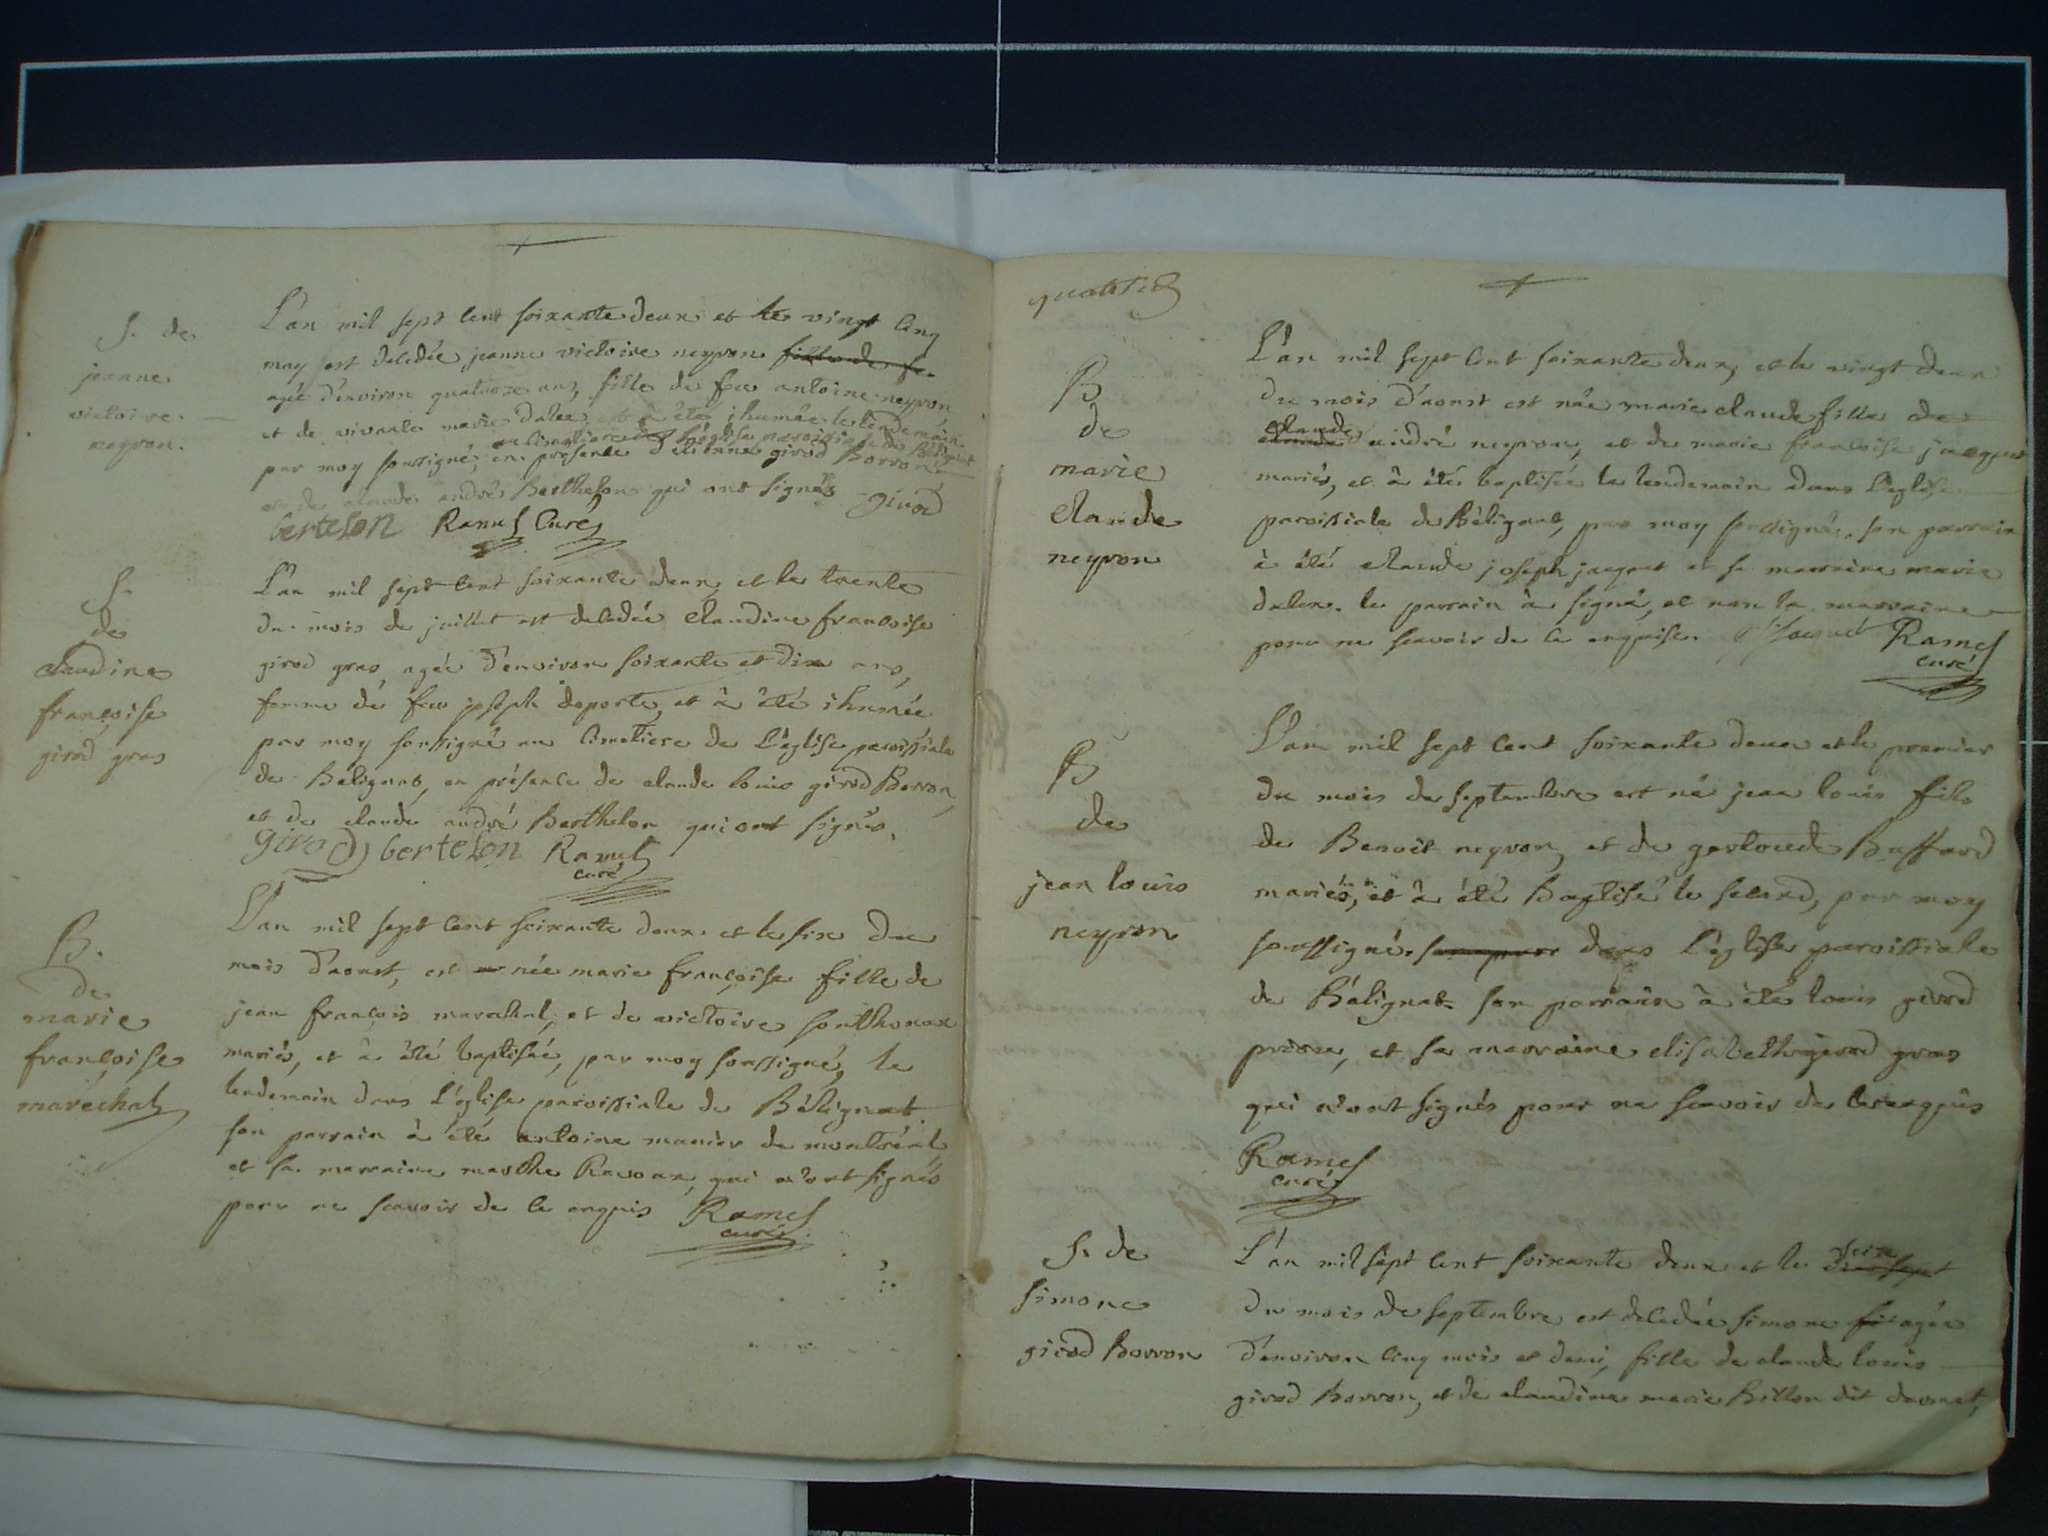 S. de
jeanne
victoire
neyron.
L'an mil sept cent soixante deux et le vingt cinq
may est decedée jeanne victoire neyron fille de fe
agée d'environ quatorze ans, fille de feu antoine neyron
et de vivante marie dalex et à été ihumée le lendemain
au cimetiere de l'église paroissiale de Bélignat
par moy soussigné, en présence d'etienne girod Borron
et de claude andré Berthelon qui ont signés girod
berteLon Ramel Curé
S.
de
claudine
françoise
girod gras
L'an mil sept cent soixante deux, et le trente
du mois de juillet est decedée claudine françoise
girod gras, agée d'environ soixante et dix ans,
femme de feu joseph deporte, et à été ihumée
par moy soussigné au cimetiere de l'église paroissiale
de Belignat, en présence de claude louis girod Borron
et de claude andré Berthelon qui ont signés.
girod berteLon Ramel
curé
B.
de
marie
françoise
maréchal
L'an mil sept cent soixante deux et le six du
mois d'aoust, est née marie françoise fille de
jean françois marechal, et de victoire sonthonax
mariés, et à été baptisée, par moy soussigné, le
lendemain dans l'église paroissiale de Bélignat.
son parrain à été antoine manier de montréal
et sa marraine marthe Ravoux, qui n'ont signés
pour ne scavoir de ce enquis Ramel
curé
B
de
marie
claude
neyron
L'an mil sept cent soixante deux, et le vingt deux
du mois d'aoust est née marie claude fille de
claude
andré neyron, et de marie françoise jacquet
mariés, et à été baptisée le lendemain dans l'église
paroissiale de Bélignat, par moy soussigné. son parrain
à été claude joseph jacquet et sa marraine marie
dalex. le parrain à signé, et non la marraine
pour ne scavoir de ce enquise. Jacquet Ramel
curé
B
de
jean louis
neyron
L'an mil sept cent soixante deux et le premier
du mois de septembre est né jean louis fils
de Benoit neyron, et de gertrude Buffard
mariés, et à été Baptisé le second, par moy
soussigné. son parr dans l'église paroissiale
de Bélignat son parrain à été louis girod
prosn, et sa marraine elisabeth girod gras
qui n'ont signés pour ne scavoir de ce enquis
Ramel
curé
S. de
simone
girod Borron
L'an mil sept cent soixante deux et le dix sept seize
du mois de septembre est decedée simone fi agée
d'environ cinq mois et demi, fille de claude louis
girod Borron, et de claudine marie Billon dit